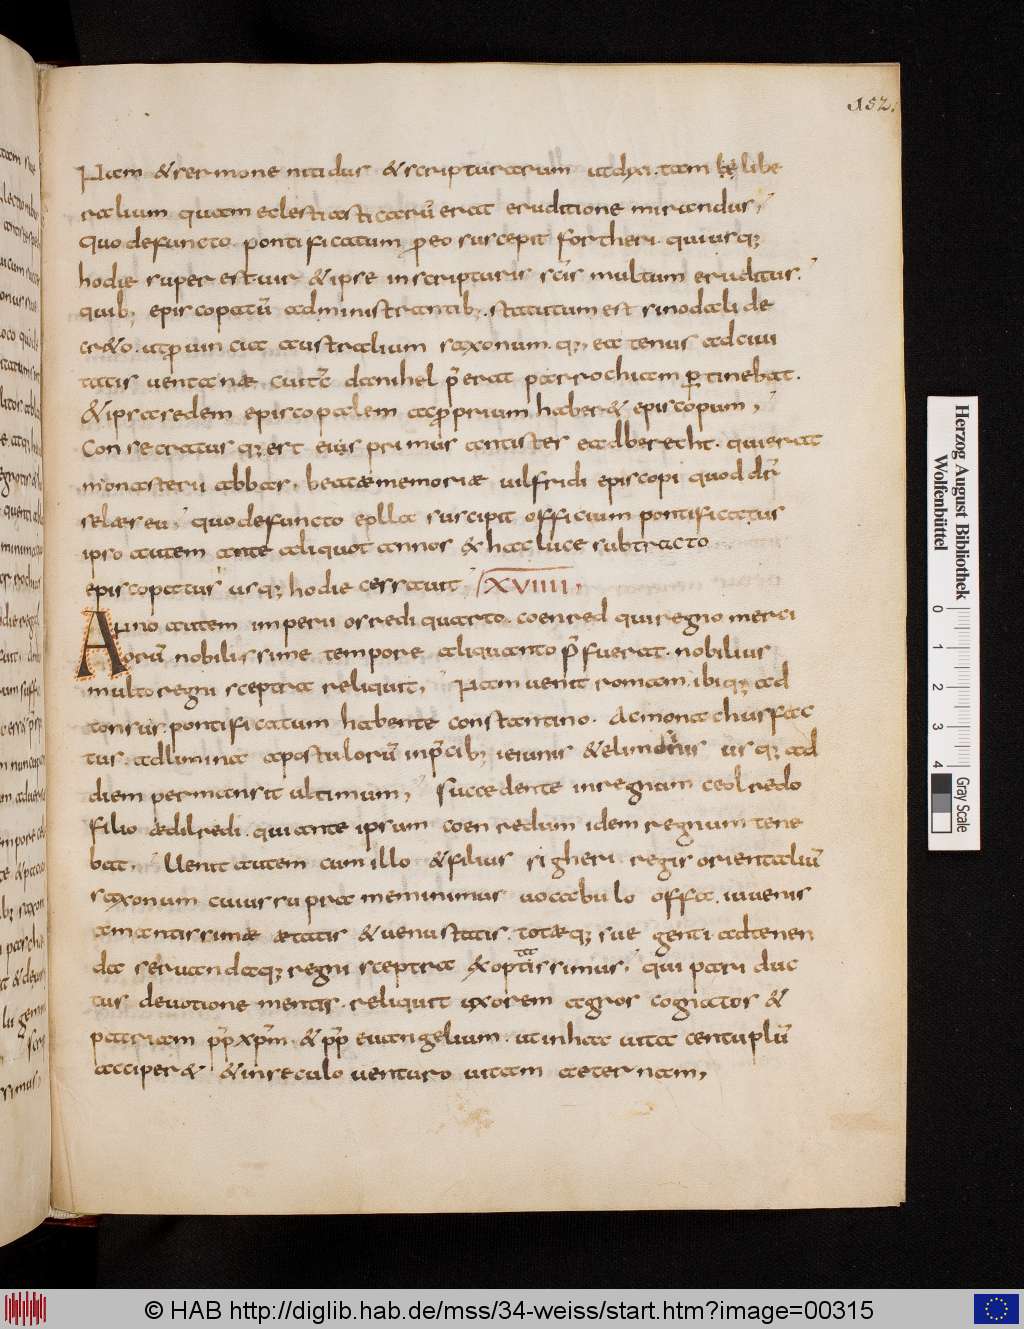 152.
Nam & sermone nitidus & scripturarum ut dixi tam libe
ralium quam eclesiasticarū erat eruditione mirandus;
quo defuncto. pontificatum ꝓ eo suscepit fortheri. qui usq;
hodie super est uir & ipse in scripturis scīs multum eruditus.
quib; episcopatū administrantib; statutum est sinodali de
cr&o. ut ꝓuincia australium saxonum. quę eatenus ad ciui
tatis uentanæ cui tc̄ danihel p̄erat parrochiam ꝑtinebat.
& ipsa sedem episcopalem ac ꝓprium haber& episcopum;
Consecratusq; est eius primus antistes eadberecht. qui erat
monasterii abbas. beatæ memoriæ uilfridi episcopi quod dr̄
selæseu; quo defuncto eolla suscipit officium pontificatus
ipso autem ante aliquot annos & hac luce subtracto
episcopatus usq; hodie cessauit XVIIII.
Anno autem imperii osredi quarto. coenred qui regno merci
orū nobilissime tempore aliquanto p̄fuerat. nobilius
multo regni sceptra reliquit; Nam uenit romam. ibiq; ad
tonsus. pontificatum habente constantino. ac monachus fac
tus. ad limina apostulorū in p̄cib; ieiunis & elimosinis usq; ad
diem permansit ultimum; succedente in regnum ceolredo
filio ædilredi. qui ante ipsum coenredum idem regnum tene
bat. Uenit autem cum illo & filius sigheri regis orientaliū
saxonum cuius supra meminimus uocabulo offa. iuuenis
amantissimæ ætatis & uenustatis. totæq; sue genti ad tenen
da seruandaq; regni sceptra exoptatissimus; qui pari duc
tus deuotione mentis. reliquit uxorem agros cognatos &
patriam ꝓp̄ xp̄m. & ꝓp̄ euangelium. ut in hac uita centuplū
acciper& & in seculo uenturo uitam aeternam;
Herzog August Bibliothek
Wolfenbüttel
0 1 2 3 4
Gray Scale
© HAB http://diglib.hab.de/mss/34-weiss/start.htm?image=00315